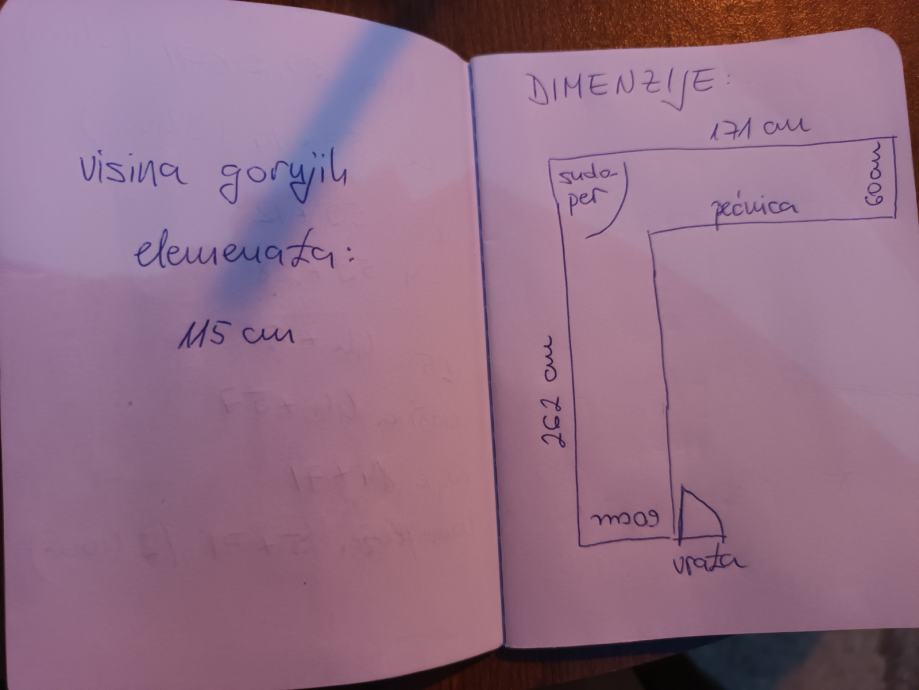 visina gornjih
elemenata:
115 cm
DIMENZIJE:
171 cm
sudo-
per
60 cm
pećnica
262 cm
60 cm
vrata